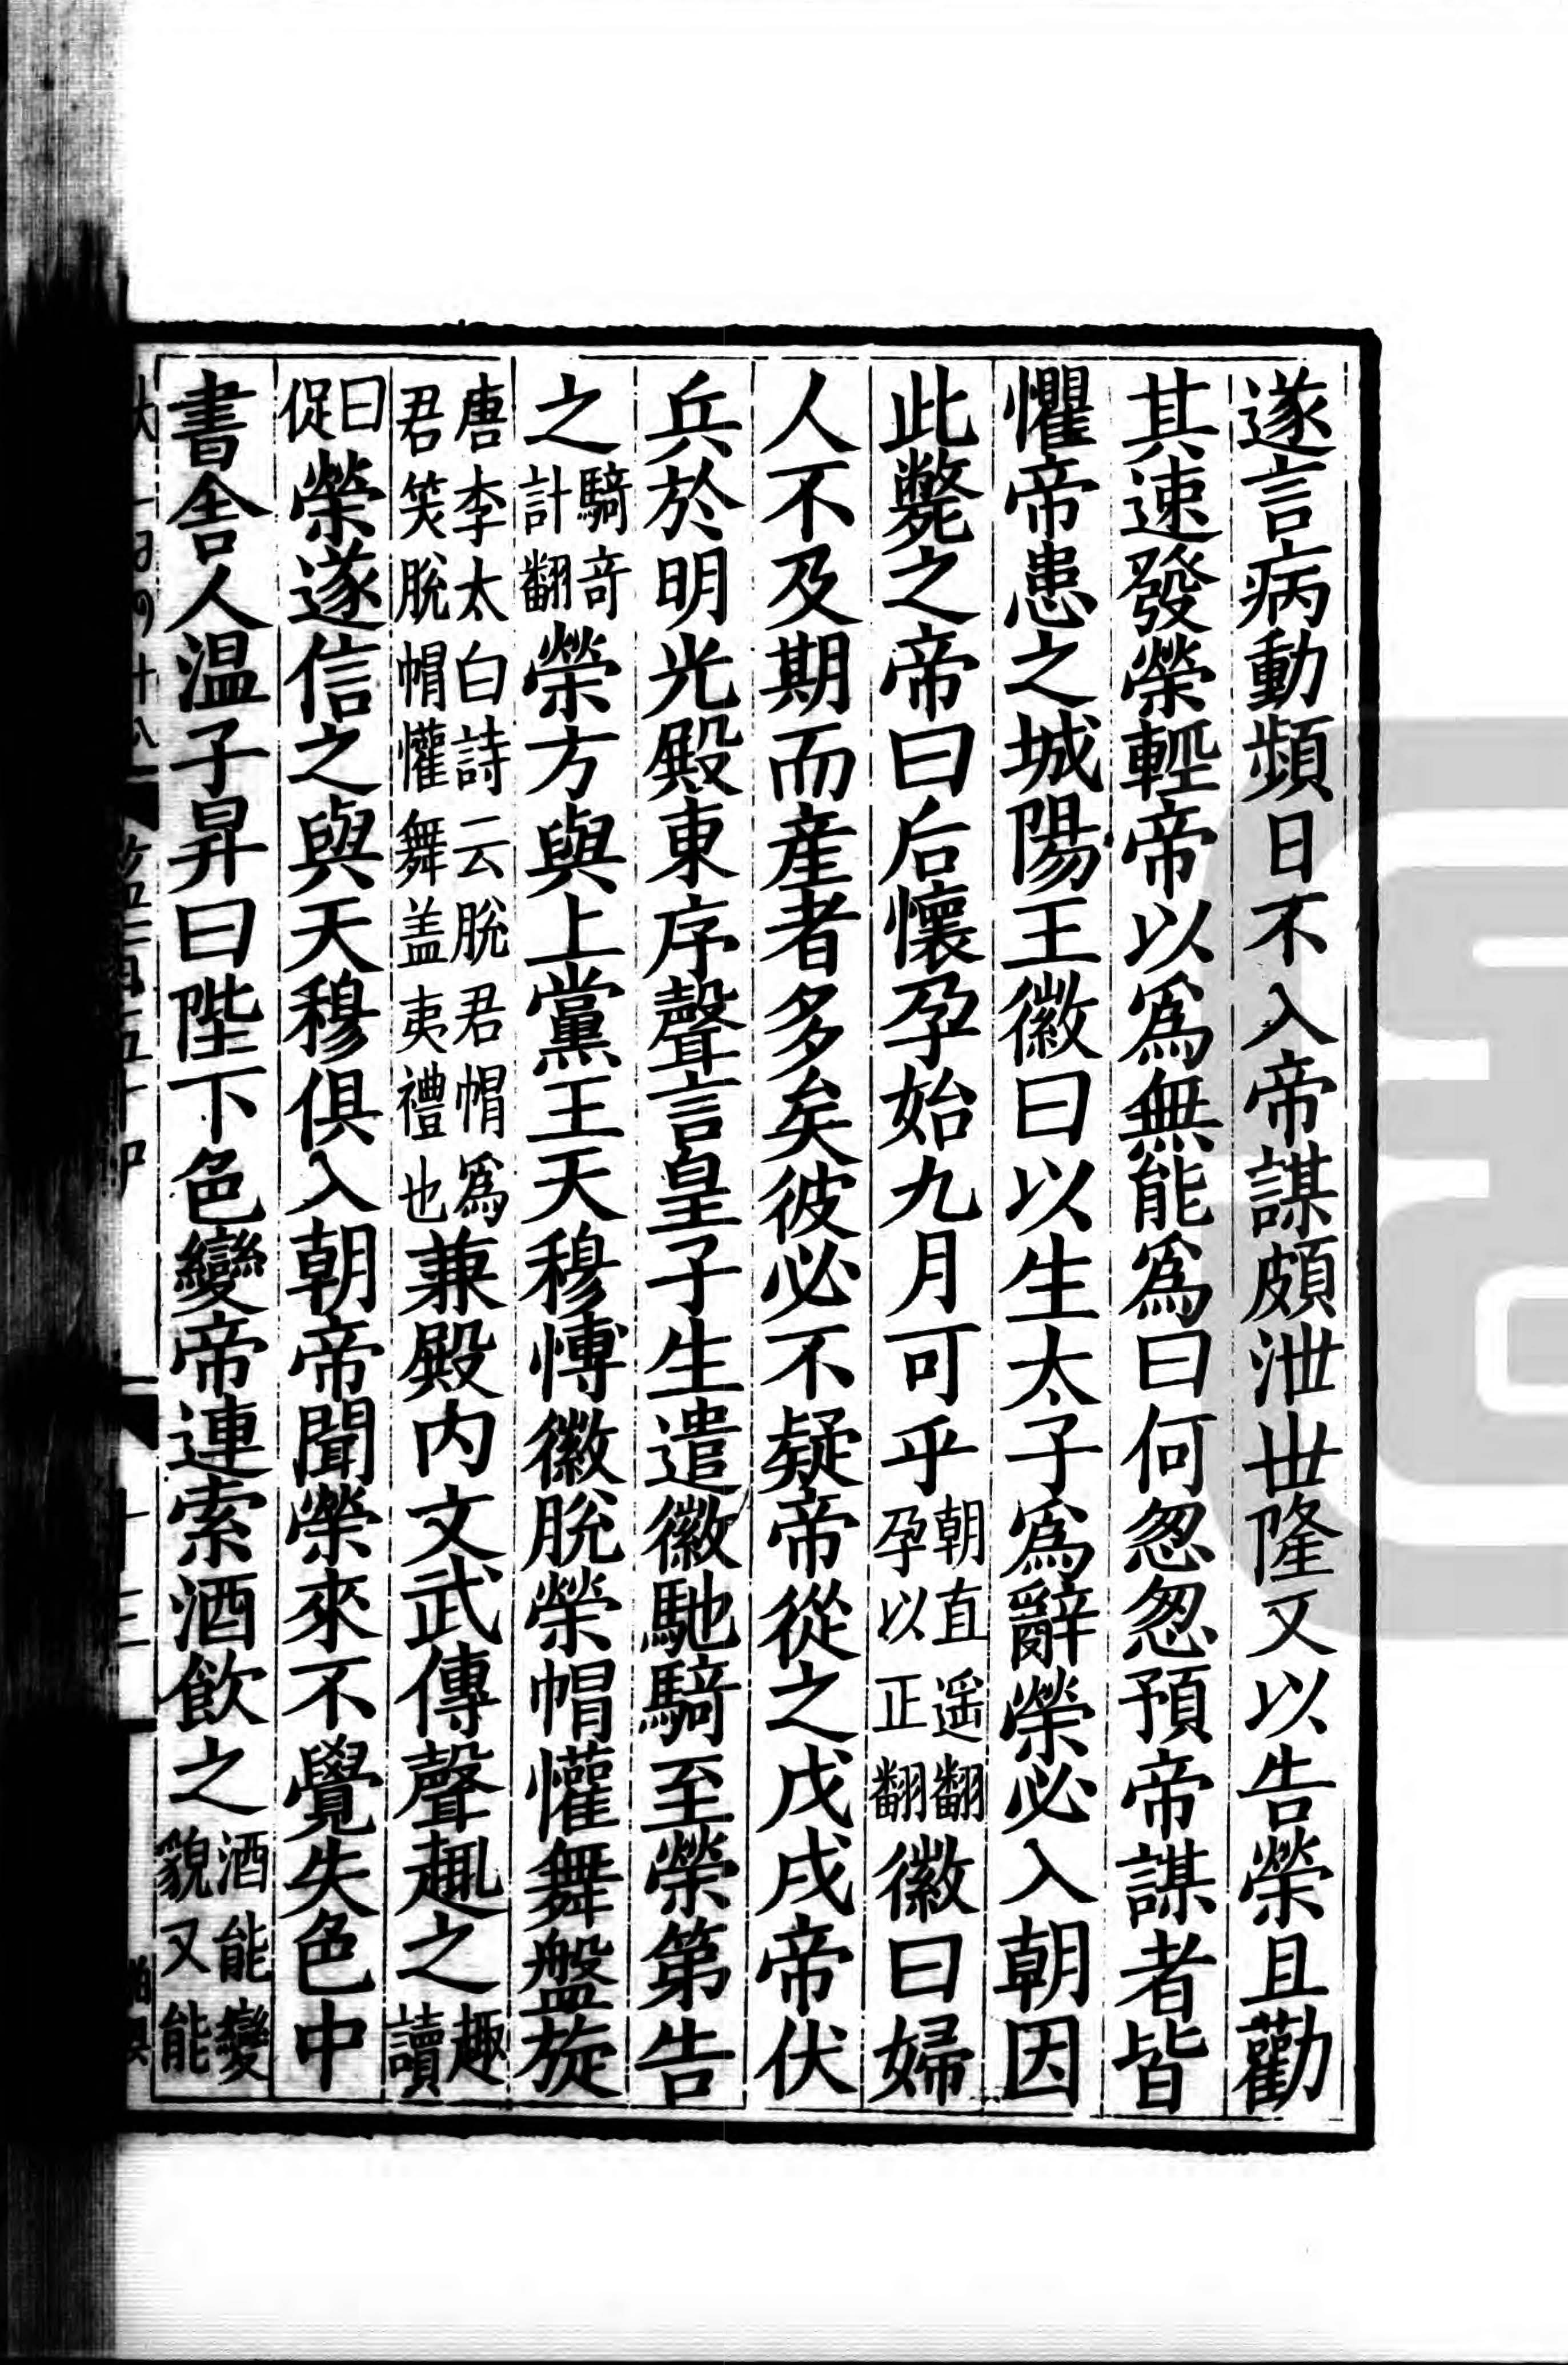 遂言病動頻日不入帝謀頗泄世隆又以告榮且勸
其速發榮輕帝以爲無能爲曰何怱怱預帝謀者皆
懼帝患之城陽王徽曰以生太子爲辭榮必入朝因
此斃之帝曰后懷孕始九月可乎朝直遥翻孕以正翻徽曰婦
人不及期而產者多矣彼必不疑帝從之戊戌帝伏
兵於明光殿東序聲言皇子生遣徽馳騎至榮第告
之騎奇計翻榮方與上黨王天穆愽徽脫榮帽懽舞盤旋
唐李太白詩云脫君帽爲君笑脫帽懽舞盖夷禮也兼殿内文武傳聲趣之趣讀
曰促榮遂信之與天穆俱入朝帝聞榮來不覺失色中
書舍人温子昇曰陛下色變帝連索酒飲之酒能變貌又能